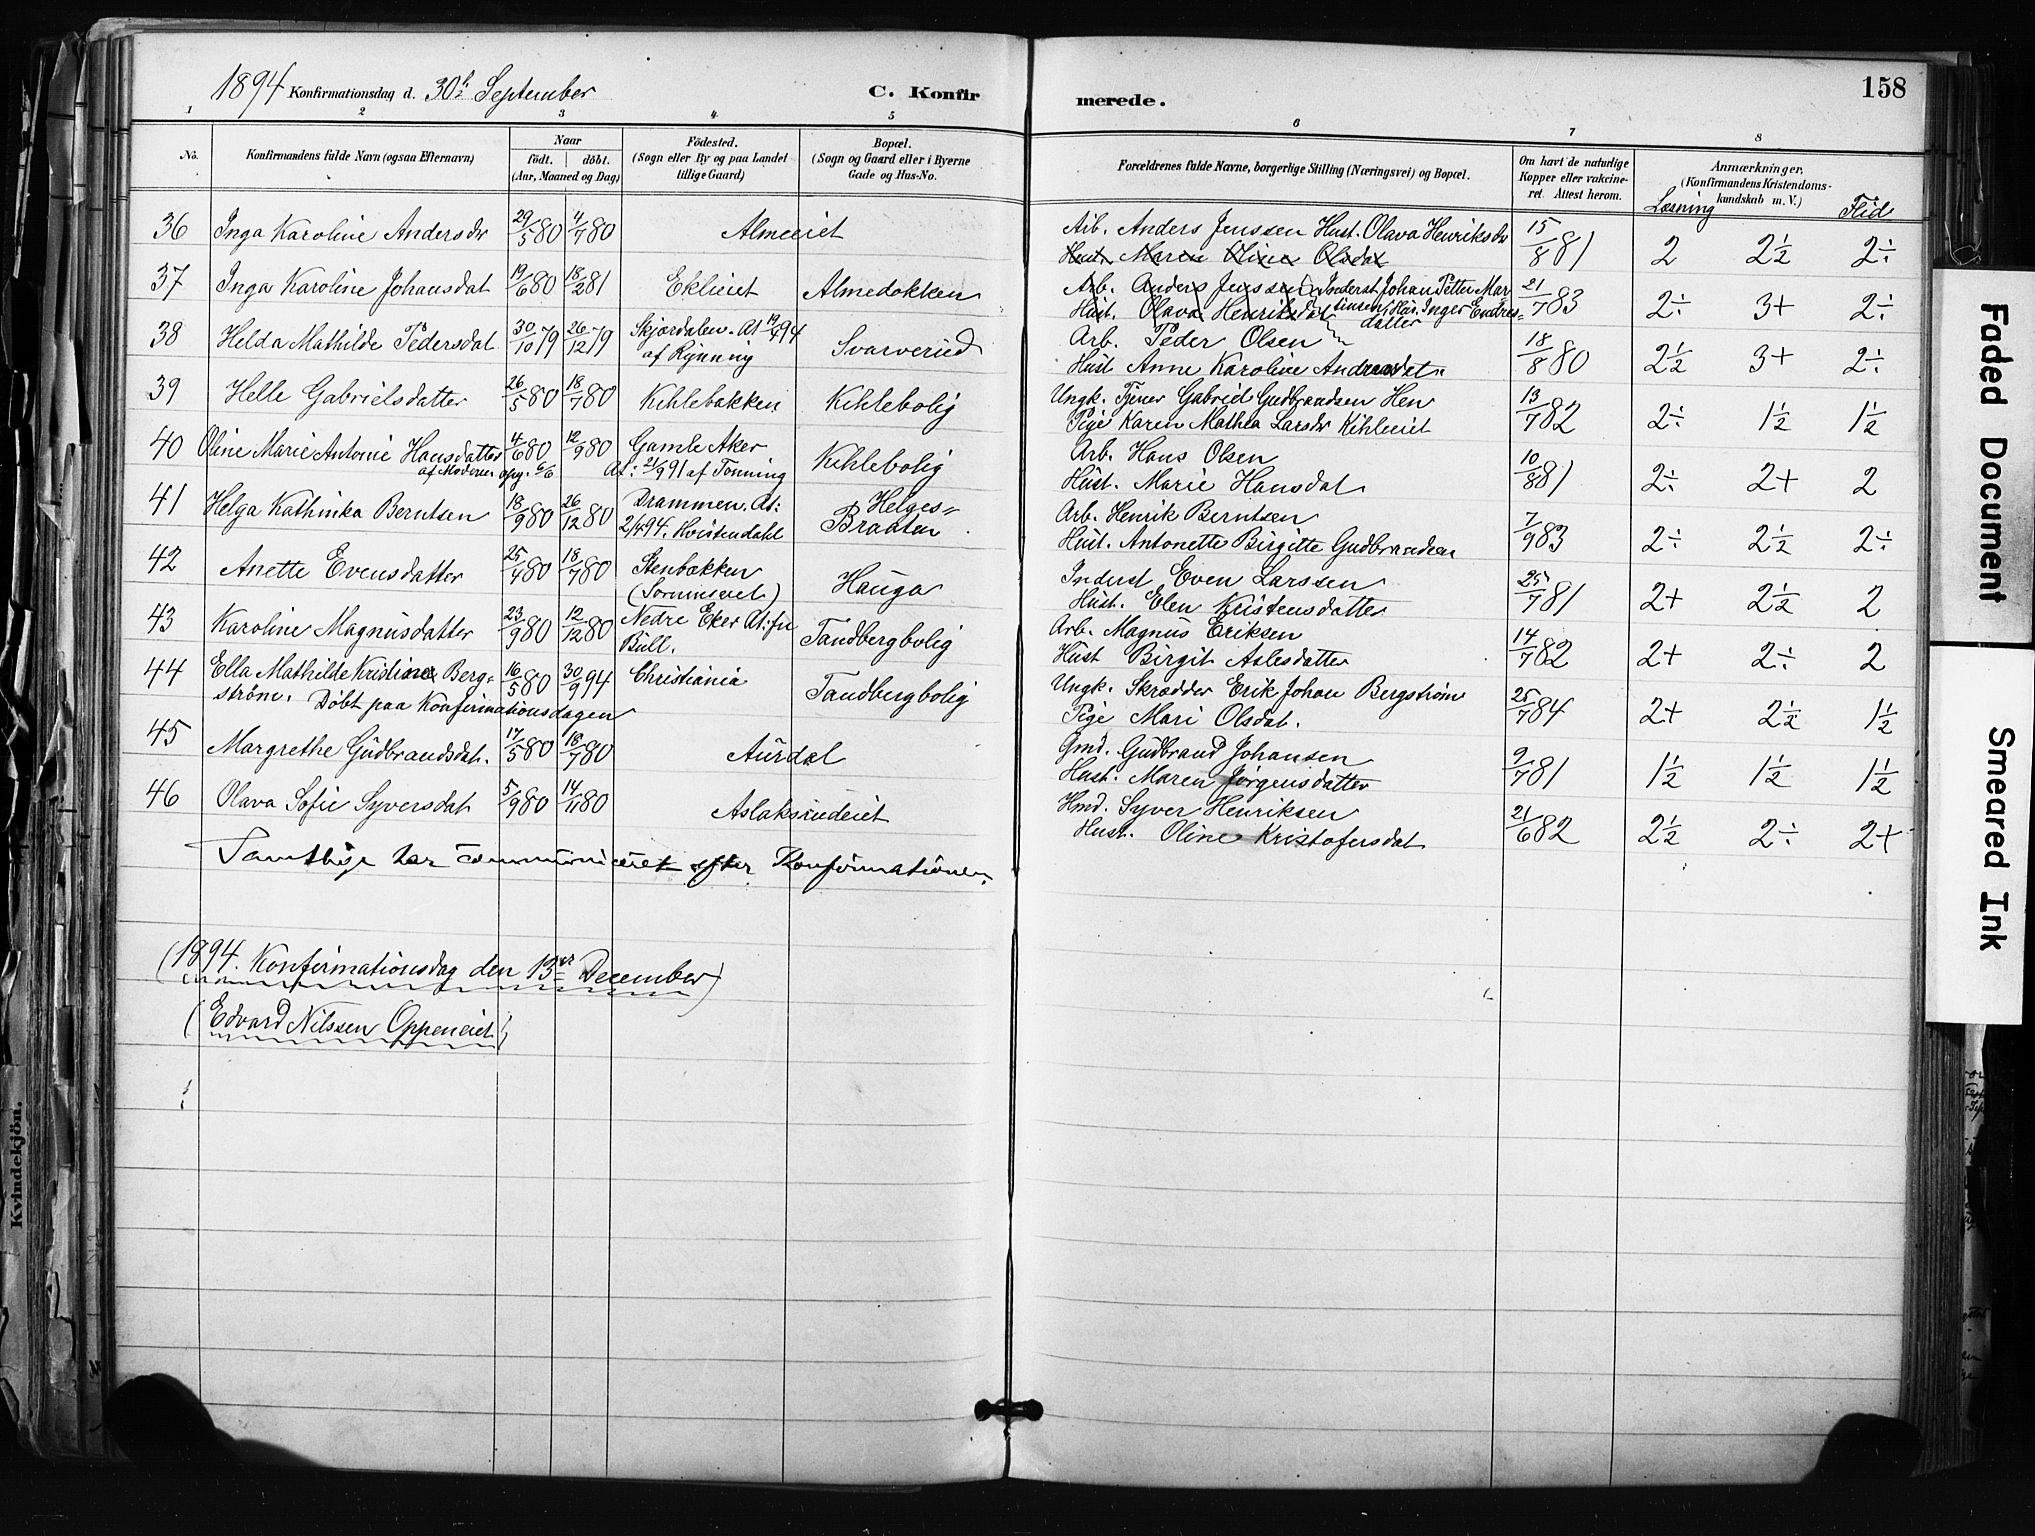 1894 Konfirmationsdag d. 30te September
C. Konfirmerede.
158
1 2 3 4 5 6 7 8
No.
Konfirmandens fulde Navn (ogsaa Efternavn)
Naar
födt. döbt.
(Aar, Maaned og Dag)
Födested.
(Sogn eller By og paa Landet
tillige Gaard)
Bopæl.
(Sogn og Gaard eller i Byerne
Gade og Hus-No.
Forældrenes fulde Navne, borgerlige Stilling (Næringsvei) og Bopæl.
Om havt de naturlige
Kopper eller vakcine-
ret. Attest herom.
Anmærkninger.
(Konfirmandens Kristendoms-
kundskab m. V.)
Læsning Flid
36 Inga Karoline Andersdr 29/5 80 4/7 80 Almeeiet Arb. Anders Jenssen Hust. Olava Henriksdr 15/8 81 2 2½ 2÷
Hust. Maren Oline Olsdat
37 Inga Karoline Johansdat 19/6 80 18/2 81 Eklieiet Almedokken Arb. Anders Jenssen Inderst Johan Petter Mar- 21/7 83 2÷ 3+ 2÷
Hust. Olava Henriksdat tinsen, Hus. Inger Endres=
datter
38 Helda Mathilde Pedersdat 30/10 79 26/12 79 Skjordalen. At 19/4 94 af Rynning Svarverud Arb. Peder Olsen 18/8 80 2½ 3+ 2÷
Hust Anne Karoline Andreasdat
39 Helle Gabrielsdatter 26/5 80 18/7 80 Kihlebakken Kihlebolig Ungk. Tjener Gabriel Gudbrandsen Hen 13/7 82 2÷ 1½ 1½
Pige Karen Mathea Larsdr Kihleeiet
40 Oline Marie Antonie Hansdatter 4/6 80 12/9 80 Gamle Aker Kihlebolig Arb. Hans Olsen 10/8 81 2÷ 2+ 2
af Moderen opg. 6/6 At: 21/9 91 af Tönning Hust. Marie Hansdat
41 Helga Kathinka Berntsen 18/9 80 26/12 80 Drammen. At: 2/4 94. Kvistendahl Helges= Braaten Arb. Henrik Berntsen 7/9 83 2÷ 2½ 2÷
Hust. Antonette Birgitte Gudbrandsen
42 Anette Evensdatter 25/4 80 18/7 80 Stenbakken Hauga Inderst Even Larssen 25/7 81 2+ 2½ 2
Hust. Elen Kristensdatter
43 Karoline Magnusdatter 23/9 80 12/12 80 Nedre Eker At: fu Bull. Tandbergbolig Arb. Magnus Eriksen 14/7 82 2+ 2÷ 2
Hust Birgit Aslesdatter
44 Ella Mathilde Kristine Berg= 16/5 80 30/9 94 Christiania Tandbergbolig Ungk. Skrædder Erik Johan Bergström 25/7 84 2+ 2½ 1½
ström. Döbt paa Konfirmationsdagen Pige Mari Olsdat.
45 Margrethe Gudbrandsdat. 17/5 80 18/7 80 Aurdal Gmd. Gudbrand Johansen 9/7 81 1½ 1½ 1½
Hust. Maren Jörgensdatter
46 Olava Sofie Syversdat 5/9 80 14/11 80 Aslaksrudeiet Hmd. Syver Henriksen 21/6 82 2½ 2÷ 2+
Hust. Oline Kristofersdat
Samtlige har communiceret efter Konfirmationen.
(1894. Konfirmationsdag den 13de December)
(Edvard Nilssen Oppeneiet)
Kvindekjön.
Faded Document
Smeared Ink